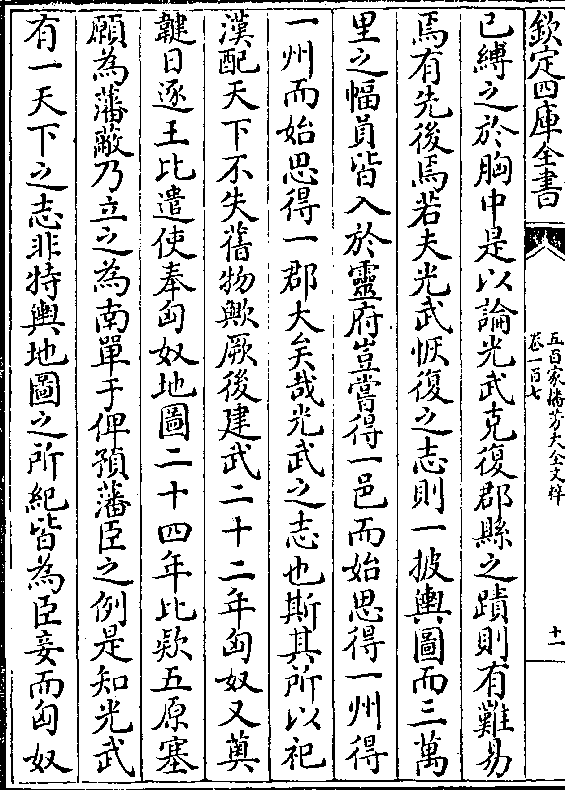 欽定四庫全書
五百家播芳大全文粹
卷一百七
十一
已縛之於胸中是以論光武克復郡縣之蹟則有難易
焉有先後焉若夫光武恢復之志則一披輿圖而三萬
里之幅員皆入於靈府豈嘗得一邑而始思得一州得
一州而始思得一郡大矣哉光武之志也斯其所以祀
漢配天下不失舊物歟厥後建武二十二年匈奴又薁
鞬日逐王比遣使奉匈奴地圖二十四年比欵五原塞
願為藩蔽乃立之為南單于俾預藩臣之例是知光武
有一天下之志非特輿地圖之所紀皆為臣妾而匈奴